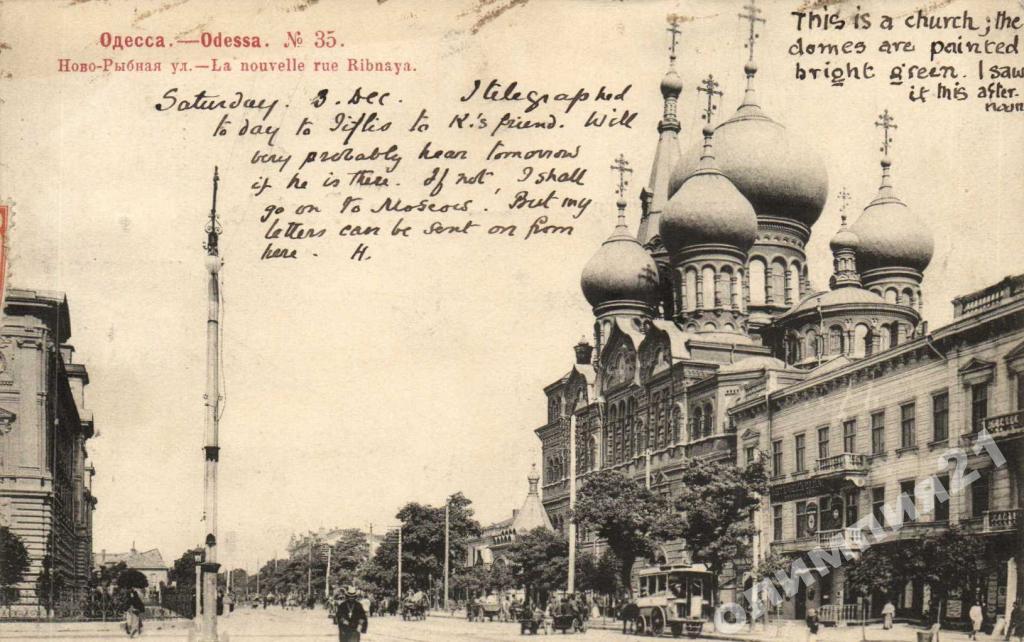 Одесса.—Odessa. № 35.
Ново-Рыбная ул.—La nouvelle rue Ribnaya.
This is a church; the
domes are painted
bright green. I saw
it this after-
noon
Saturday. 3. Dec. I telegraphed
to day to Tiflis to K.'s friend. Will
very probably hear tomorrow
if he is there. If not, I shall
go on to Moscow. But my
letters can be sent on from
here. H.
олимпия21